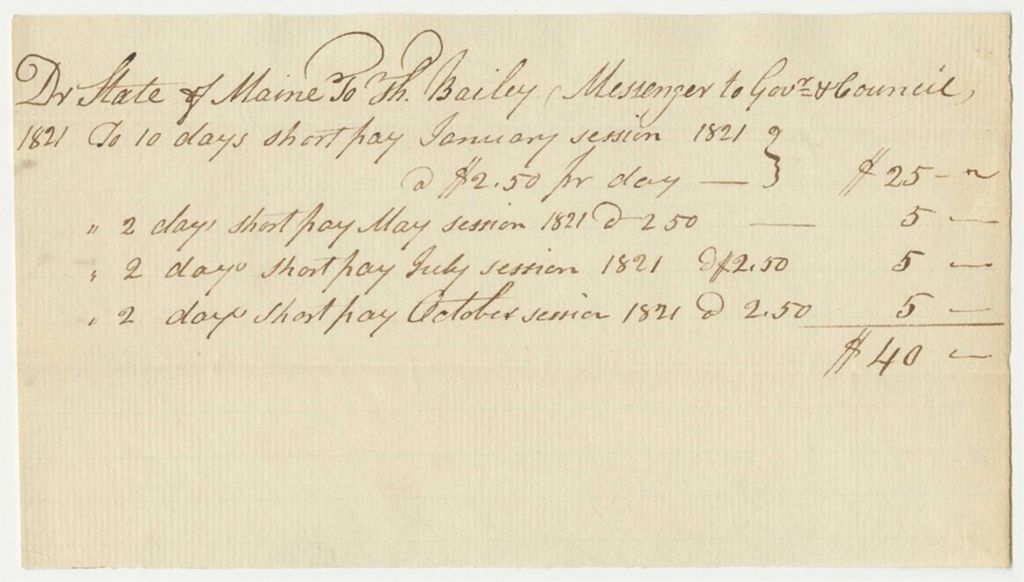 Dr State of Maine To Th. Bailey, Messenger to Govr. & Council,
1821 To 10 days short pay January session 1821 }
@ $2.50 pr day — $25 –
" 2 days short pay May session 1821 @ 2 50 — 5 —
" 2 days short pay July session 1821 @ $2.50 5 —
" 2 days short pay October session 1821 @ 2.50 5 —
$40 —